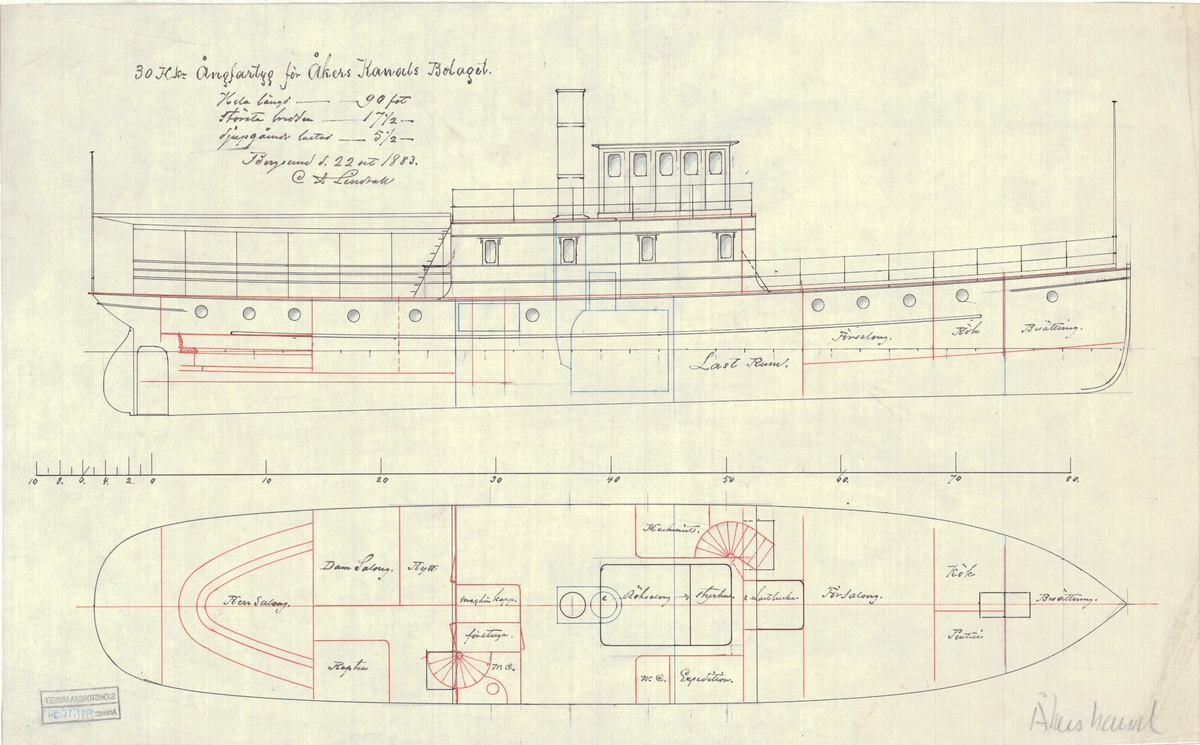 30 Hkr Ångfartyg för Åkers Kanals Bolaget.
Hela längd — 90 fot
Största bredden — 17 1/2 —
djupgående lastad — 5 1/2 —
Bergsund d. 22 oct 1883.
Försalong.
Kök
Besättning.
Last Rum.
10 8. 6. 4. 2. 0 10 20 30 40 50 60. 70 80.
Maschinist.
Dam Salong.
Hytt
Herr Salong.
Maskin kapp.
Röksalong
Styrhus.
Lastlucka
FörSalong.
Kök
Besättning.
Pentri
Kapten
W.C.
W.C.
Expedition.
SJÖHISTORISKA MUSEET
Åkers kanal